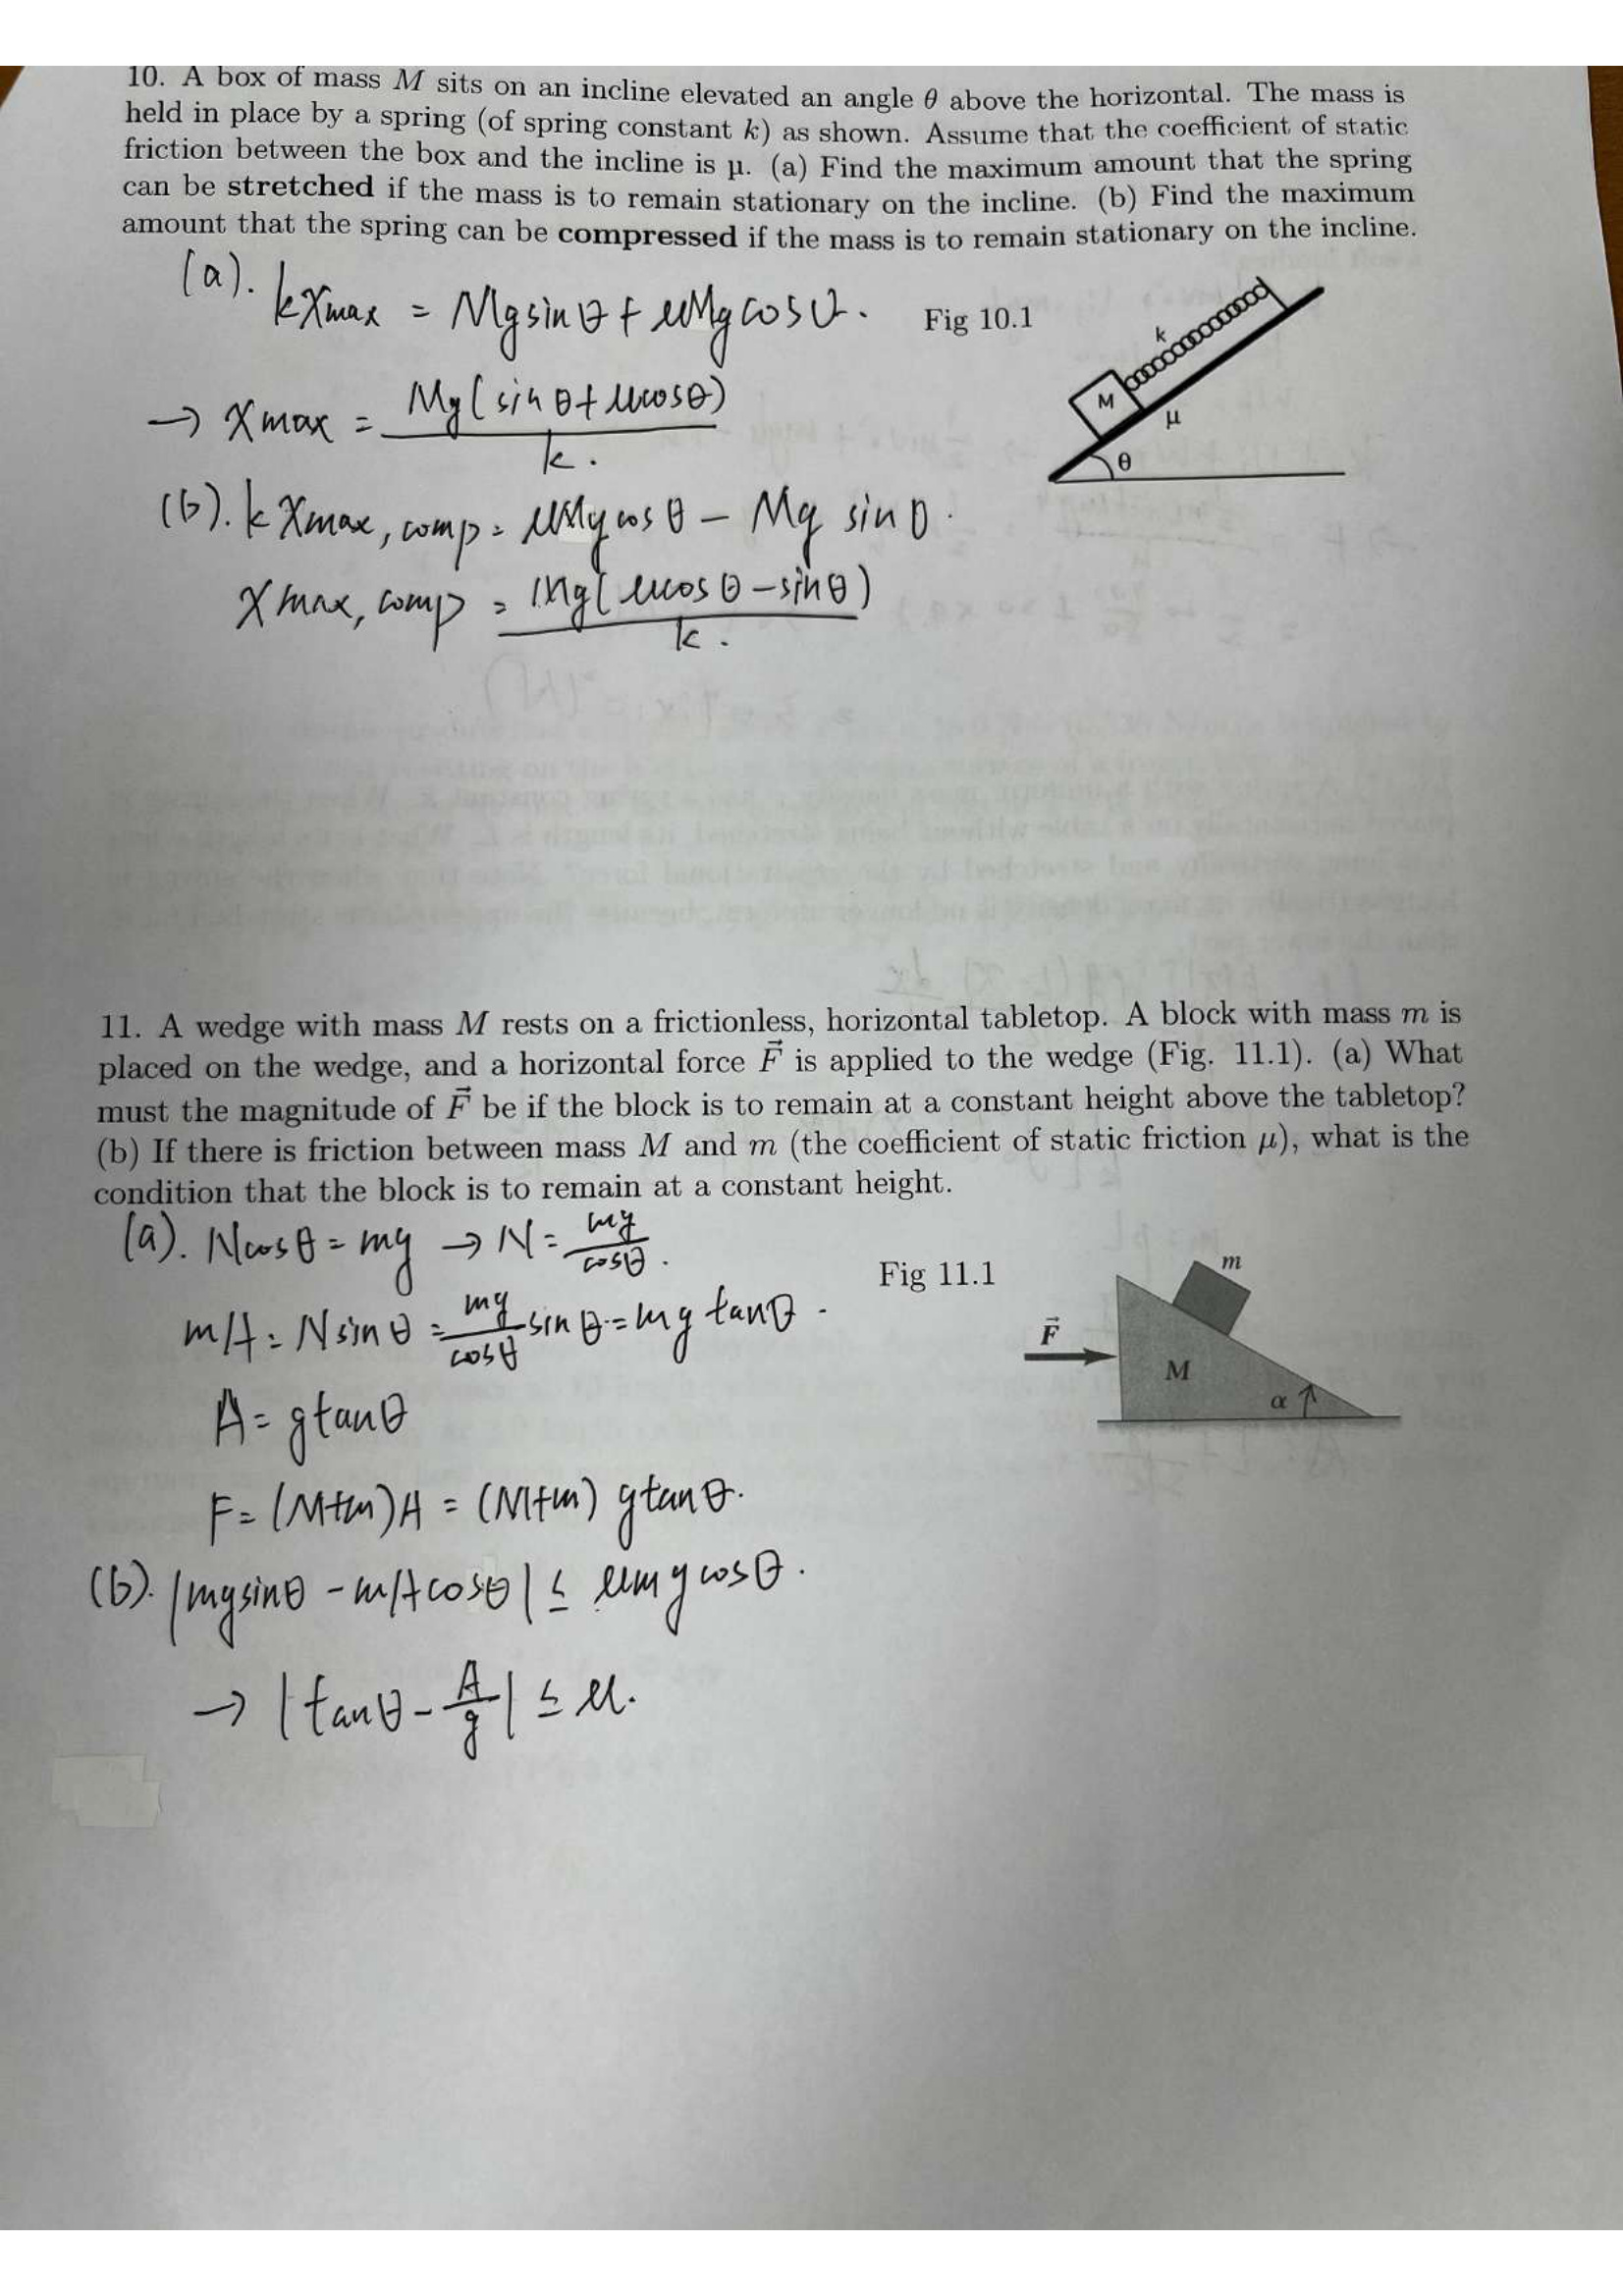 10. A box of mass M sits on an incline elevated an angle θ above the horizontal. The mass is
held in place by a spring (of spring constant k) as shown. Assume that the coefficient of static
friction between the box and the incline is μ. (a) Find the maximum amount that the spring
can be stretched if the mass is to remain stationary on the incline. (b) Find the maximum
amount that the spring can be compressed if the mass is to remain stationary on the incline.
(a). kxmax = Mg sinθ + μMg cosθ.
Fig 10.1
k
M
μ
θ
→ xmax = Mg(sinθ+μcosθ) / k.
(b). k xmax, comp = μMg cosθ - Mg sinθ.
xmax, comp = Mg(μcosθ - sinθ) / k.
11. A wedge with mass M rests on a frictionless, horizontal tabletop. A block with mass m is
placed on the wedge, and a horizontal force F⃗ is applied to the wedge (Fig. 11.1). (a) What
must the magnitude of F⃗ be if the block is to remain at a constant height above the tabletop?
(b) If there is friction between mass M and m (the coefficient of static friction μ), what is the
condition that the block is to remain at a constant height.
(a). Ncosθ = mg → N = mg / cosθ.
Fig 11.1
m
F⃗
M
α
mA = N sinθ = mg / cosθ sinθ = mg tanθ.
A = gtanθ
F = (M+m)A = (M+m) gtanθ.
(b). |mgsinθ - mAcosθ| ≤ μmg cosθ.
→ |tanθ - A/g| ≤ μ.